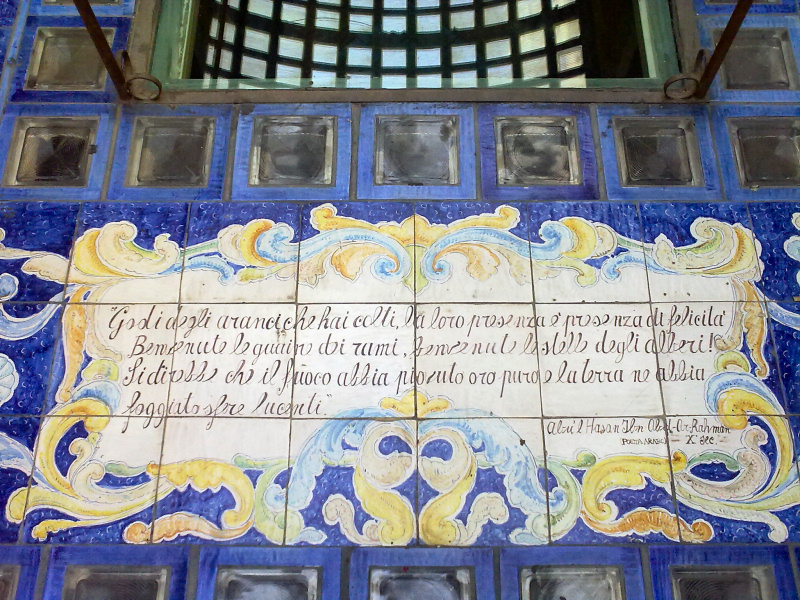 "Godi degli aranci che hai colti, la loro presenza è presenza di felicità
Benvenute le guance dei rami, benvenute le stelle degli alberi!
Si direbbe che il fuoco abbia piovuto oro puro e la terra ne abbia
foggiato sfere lucenti".
Abu'l Hasan Ibn Abd-Ar-Rahman
POETA ARABO - X° sec.